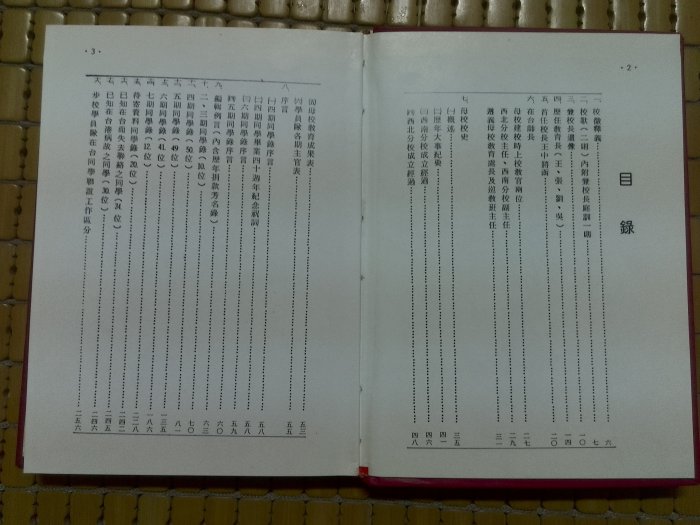 ·2·
目錄
一、校徽釋義……六
二、校歌(二闋)內附兼校長庭訓一則……七
三、兼校長遺像……一〇
四、歷任教育長(王、張、劉、吳)……一四
五、首任校長王中將函……二〇
六、在台師長……二七
母校建校時上校教官兩位……二九
西北分校主任、西南分校副主任
遵義母校教育處長及巡教班主任……三一
七、母校校史
㈠概述……三五
㈡歷年大事紀要……四一
㈢西南分校成立經過……四六
㈣西北分校成立經過……四八
·3·
㈤母校教育成果表……五三
㈥學員隊各期主官表……五五
八、序言
㈠四期同學錄序言……五八
㈡四期同學畢業四十週年紀念祝詞……五八
㈢六期同學錄序言……五八
㈣五期同學錄序言……五九
九、編輯例言(內含歷年捐款芳名錄)……六〇
十、二、三期同學錄(10位)……六三
四期同學錄(50位)……七〇
五期同學錄(49位)……八一
六期同學錄(41位)……一三五
七期同學錄(12位)……一八六
待寄資料同學錄(20位)……二二八
已知在台尚失去聯絡之同學(24位)……二四二
已知在台港病故之同學(30位)……二四五
步校學員隊在台同學聯誼工作區分……二四六
二五六